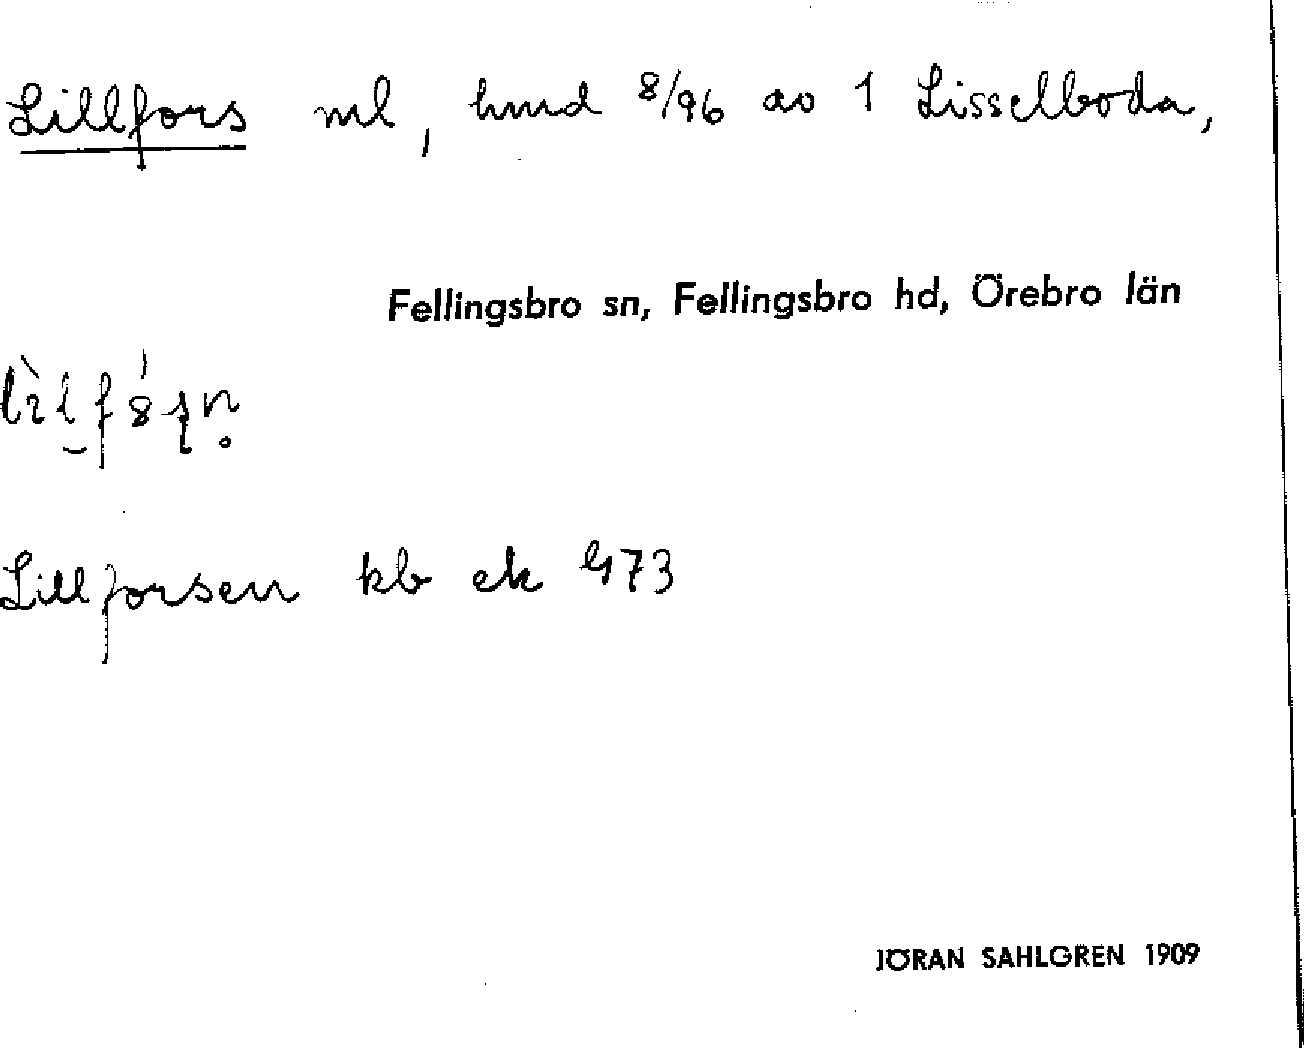 Lillfors ml, hmd 8/96 av 1 Lisselboda,
Fellingsbro sn, Fellingsbro hd, Örebro län
Lillforsen kb ek G73
JÖRAN SAHLGREN 1909